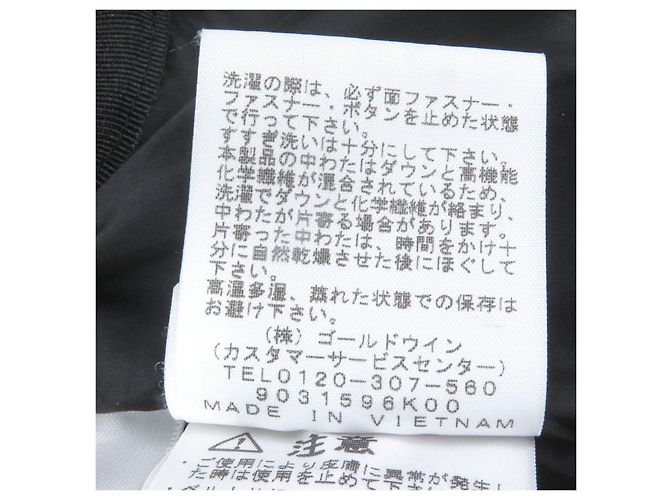 洗濯の際は、必ず面ファスナー・
ファスナー・ボタンを止めた状態
で行って下さい。
すすぎ洗いは十分にして下さい。
本製品の中わたはダウンと高機能
化学繊維が混合されているため、
洗濯でダウンと化学繊維が絡まり、
中わたが片寄る場合があります。
片寄った中わたは、時間をかけ十
分に自然乾燥させた後にほぐして
下さい。
高温多湿、蒸れた状態での保存は
お避け下さい。
(株)ゴールドウイン
(カスタマーサービスセンター)
TEL0120-307-560
9031596K00
MADE IN VIETNAM
注意
・ご使用により皮膚に異常が発生し
た時は使用を止め、医師に